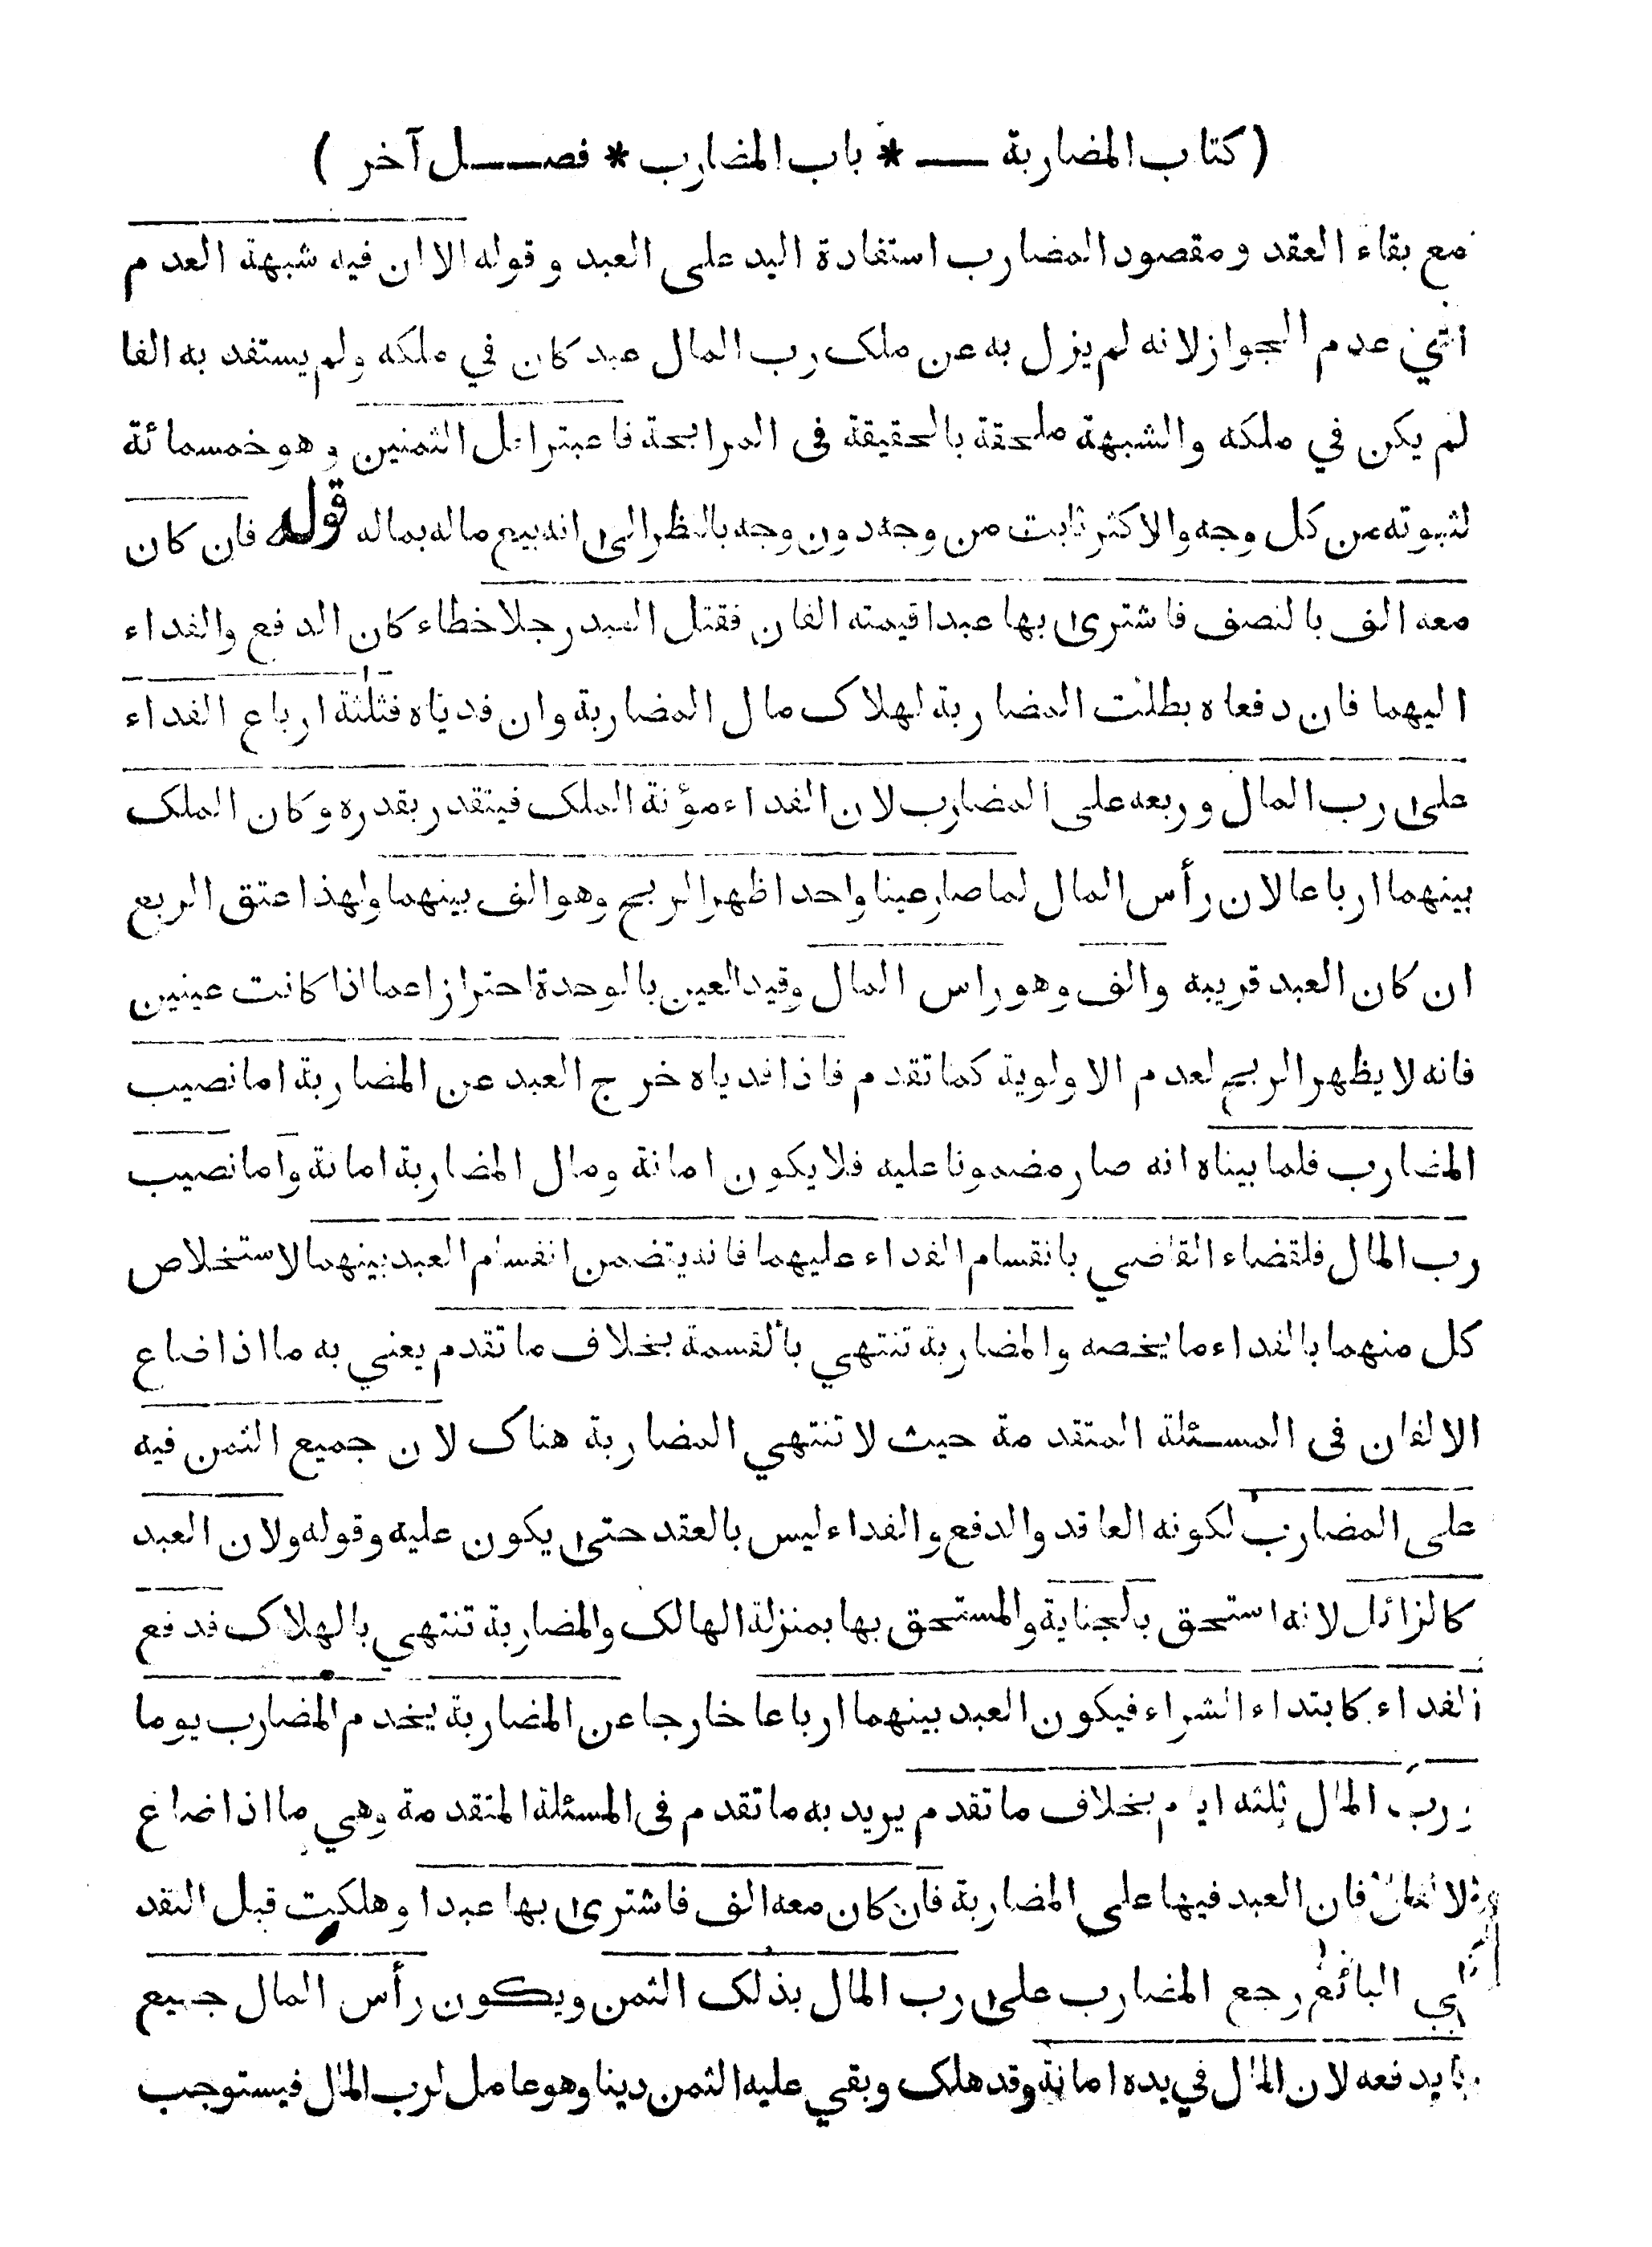 ( كتاب المضاربة — * باب المضارب * فصل آخر )
مع بقاء العقد ومقصود المضارب استفادة اليد على العبد وقوله الا ان فيه شبهة العدم
اي عدم الجواز لانه لم يزل به عن ملك رب المال عبد كان في ملكه ولم يستفد به الفا
لم يكن في ملكه والشبهة ملحقة بالحقيقة في المرابحة فاعتبر اقل الثمنين وهو خمسمائة
لثبوته من كل وجه والاكثر ثابت من وجه دون وجه بالنظر الى انه بيع ماله بماله قوله فان كان
معه الف بالنصف فاشترى بها عبدا قيمته الفان فقتل العبد رجلا خطاء كان الدفع والفداء
اليهما فان دفعاه بطلت المضاربة لهلاك مال المضاربة وان فدياه فثلثة ارباع الفداء
على رب المال وربعه على المضارب لان الفداء مؤنة الملك فيتقدر بقدره وكان الملك
بينهما ارباعا لان رأس المال لما صار عينا واحدا ظهر الربح وهو الف بينهما ولهذا عتق الربع
ان كان العبد قريبه والف وهو راس المال وقيد العين بالوحدة احترازا عما اذا كانت عينين
فانه لا يظهر الربح لعدم الاولوية كما تقدم فاذا فدياه خرج العبد عن المضاربة اما نصيب
المضارب فلما بيناه انه صار مضمونا عليه فلا يكون امانة ومال المضاربة امانة واما نصيب
رب المال فلقضاء القاضي بانقسام الفداء عليهما فانه يتضمن انقسام العبد بينهما لاستخلاص
كل منهما بالفداء ما يخصه والمضاربة تنتهي بالقسمة بخلاف ما تقدم يعني به ما اذا ضاع
الالفان في المسئلة المتقدمة حيث لا تنتهي المضاربة هناك لان جميع الثمن فيه
على المضارب لكونه العاقد والدفع والفداء ليس بالعقد حتى يكون عليه وقوله ولان العبد
كالزائل لانه استحق بالجناية والمستحق بها بمنزلة الهالك والمضاربة تنتهي بالهلاك فدفع
الفداء كابتداء الشراء فيكون العبد بينهما ارباعا خارجا عن المضاربة يخدم المضارب يوما
ورب المال ثلثه ايام بخلاف ما تقدم يريد به ما تقدم في المسئلة المتقدمة وهي ما اذا ضاع
الالفان فان العبد فيها على المضاربة فان كان معه الف فاشترى بها عبدا وهلكت قبل النقد
الى البائع رجع المضارب على رب المال بذلك الثمن ويكون رأس المال جميع
ما يدفعه لان المال في يده امانة وقد هلك وبقي عليه الثمن دينا وهو عامل لرب المال فيستوجب